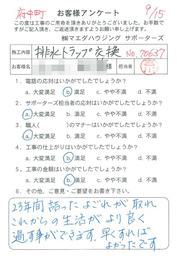 府中町
お客様アンケート
9/15
この度は工事のご用命を頂きありがとうございました。お手数で
すがご記入頂き、ご返送頂きますようお願い申し上げます。
㈱マエダハウジング サポーターズ
施工内容 排水トラップ交換 No.70637
1. 電話の応対はいかがでしたでしょうか？
a.大変満足 b.満足 c.やや不満 d.不満
2. サポーターズ担当者の応対はいかがでしたでしょうか？
a.大変満足 b.満足 c.やや不満 d.不満
3. 職人( )のマナーはいかがでしたでしょうか？
a.大変満足 b.満足 c.やや不満 d.不満
4. 工事の仕上がりはいかがでしたでしょうか？
a.大変満足 b.満足 c.やや不満 d.不満
5. 工事の料金はいかがでしたでしょうか？
a.大変満足 b.満足 c.やや不満 d.不満
6. その他、ご意見・ご要望をお書き下さい。
23年間詰ったよごれが取れ
これからの生活がより良く
過す事ができます。早くすれば
よかったです